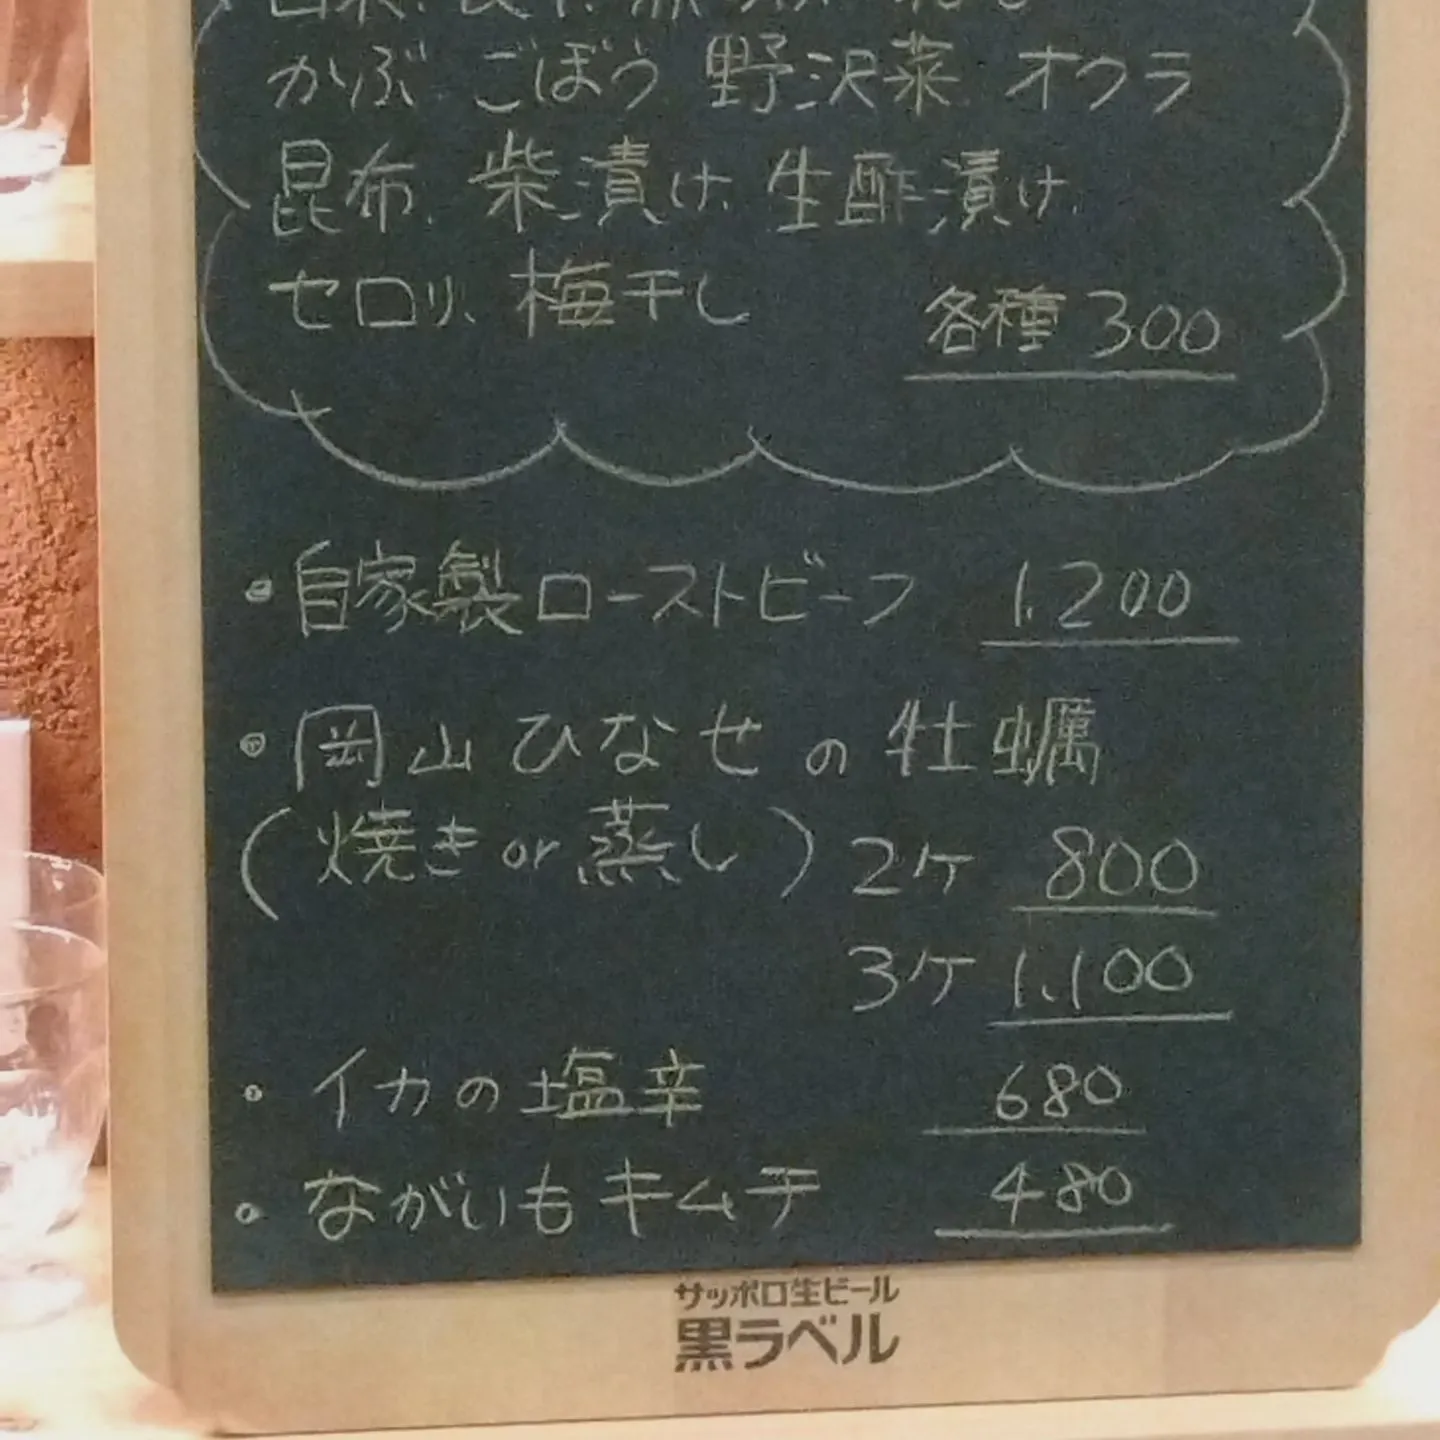 かぶ ごぼう 野沢菜 オクラ
昆布、柴漬け、生酢漬け、
セロリ、梅干し
各種 300
・自家製ローストビーフ 1,200
・岡山ひなせの牡蠣
(焼き or 蒸し) 2ケ 800
3ケ 1,100
・イカの塩辛 680
・ながいもキムチ 480
サッポロ生ビール
黒ラベル